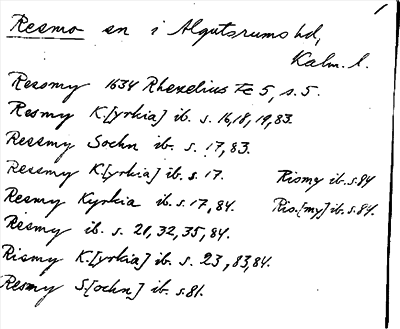 Resmo sn i Algutsrums hd,
Kalm. l.
Ressmy 1634 Rhezelius Fc 5, s. 5.
Resmy K.[yrkia] ib. s. 16, 18, 19, 83.
Ressmy Sochn ib. s. 17, 83.
Ressmy K[yrkia] ib. s. 17. Rismy ib. s. 84
Resmy Kyrkia ib. s. 17, 84. Ris.[my] ib. s. 84.
Resmy ib. s. 21, 32, 35, 84.
Rismy K.[yrkia] ib. s. 23, 83, 84.
Resmy S.[ochn] ib. s. 81.